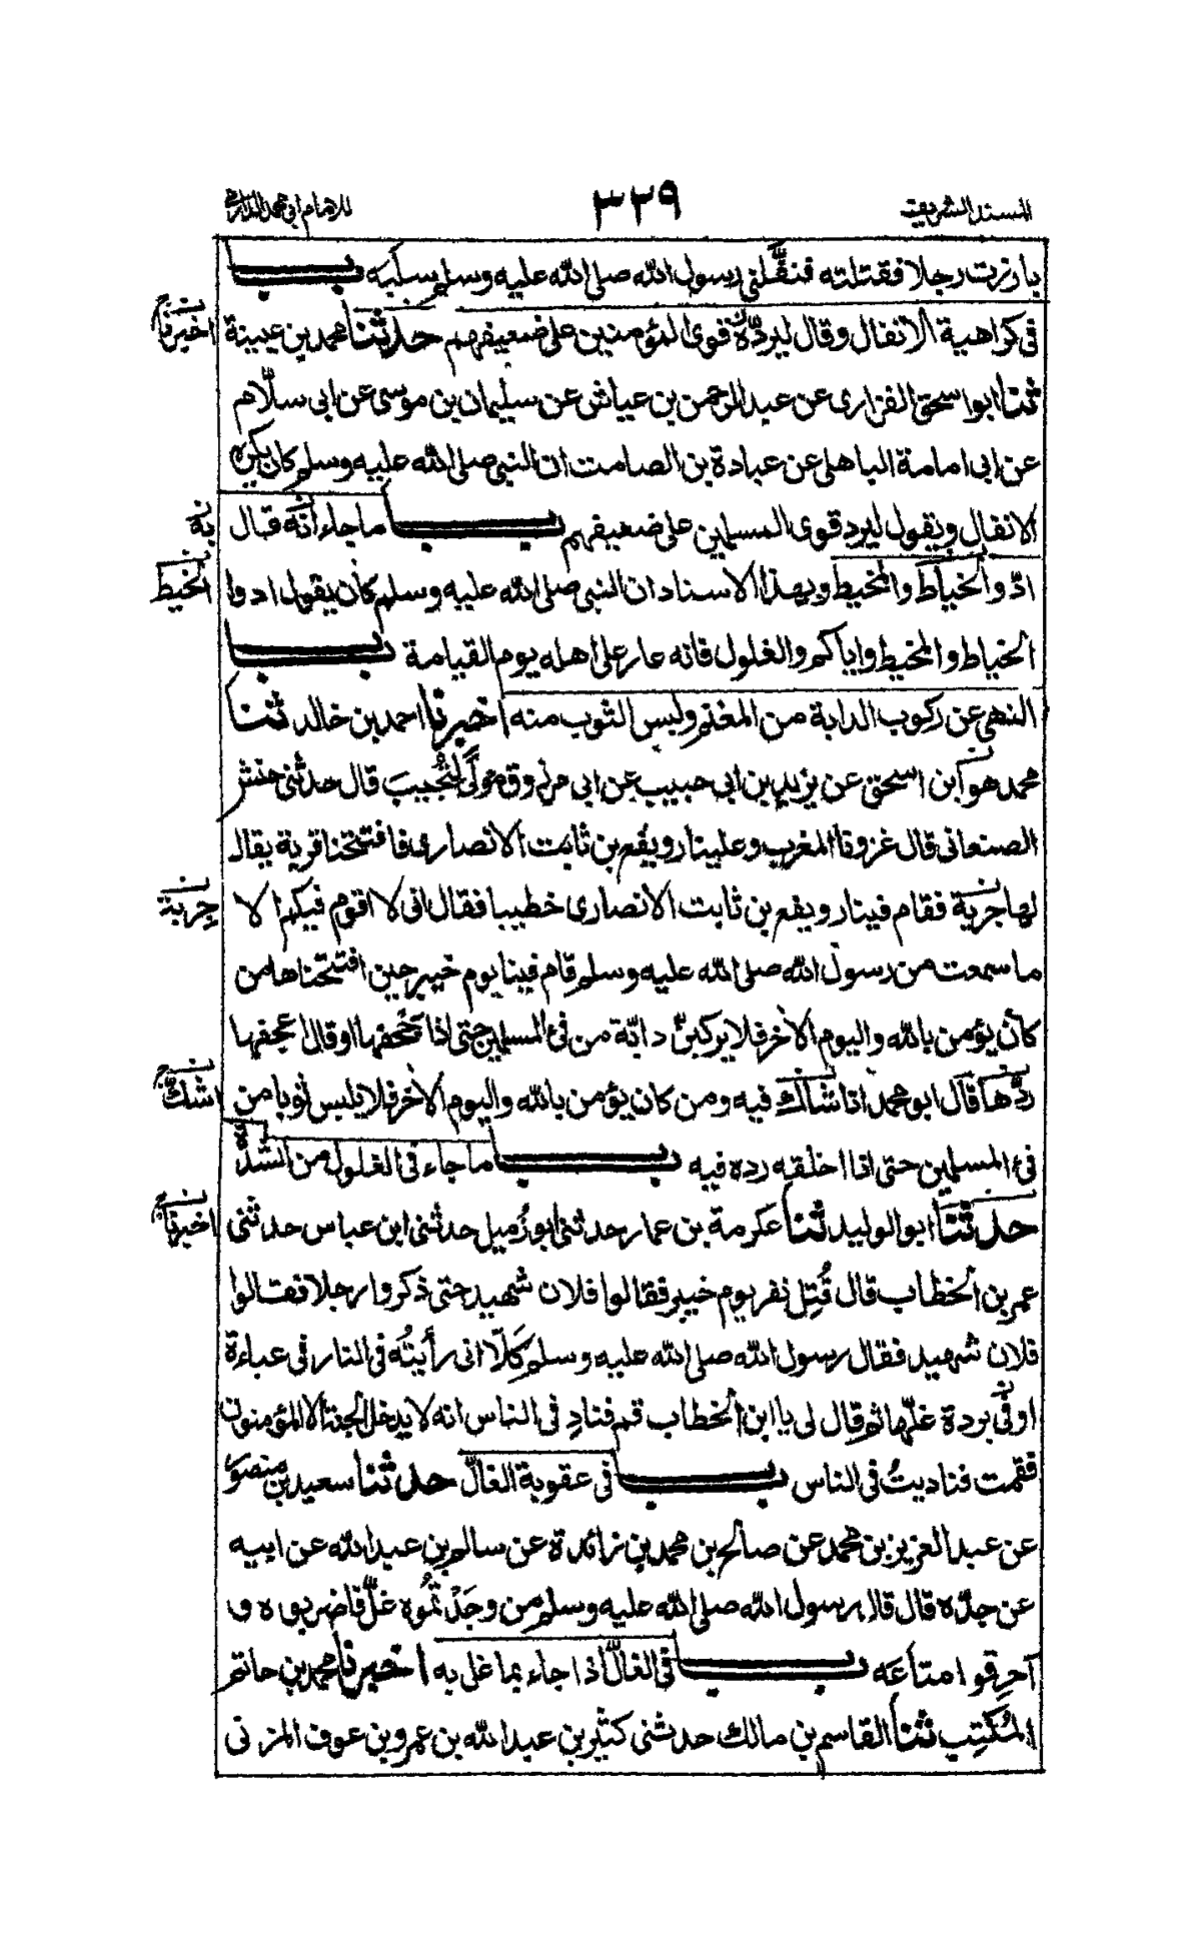 المسند الشريف ٣٣٩ للامام ابی محمد الدارمی
بارزت رجلا فقتلته فنفَّلنی رسول الله صلی الله علیه وسلم سلَبَه باب
فی کراهیة الانفال وقال لیردّه قوی المؤمنین علی ضعیفهم حدثنا محمد بن عیینة
اخبرنا
ثنا ابو اسحق الفزاری عن عبد الرحمن بن عیاش عن سلیمان بن موسی عن ابی سلّام
عن ابی امامة الباهلی عن عبادة بن الصامت ان النبی صلی الله علیه وسلم کان یکره
الانفال ویقول لیرد قوی المسلمین علی ضعیفهم باب ما جاء انه قال
به
ادّوا الخیاط والمخیط وبهذا الاسناد ان النبی صلی الله علیه وسلم کان یقول ادوا
الخیط
الخیاط والمخیط وایاکم والغلول فانه عار علی اهله یوم القیامة باب
النهی عن رکوب الدابة من المغنم ولبس الثوب منه اخبرنا احمد بن خالد ثنا
محمد هو ابن اسحق عن یزید بن ابی حبیب عن ابی مرزوق مولًی لتُجِیبَ قال حدثنی حنش
الصنعانی قال غزونا المغرب وعلینا رویفع بن ثابت الانصاری فافتتحنا قریة یقال
لها جربة فقام فینا رویفع بن ثابت الانصاری خطیبا فقال انی لا اقوم فیکم الا
جِربة
ما سمعت من رسول الله صلی الله علیه وسلم قام فینا یوم خیبر حین افتتحناها من
کان یؤمن بالله والیوم الآخر فلا یرکبنّ دابّة من فئ المسلمین حتی اذا اعجفها او قال اعجفها
ردّها قال ابو محمد انا شاك فیه ومن کان یؤمن بالله والیوم الآخر فلا یلبس ثوبا من
اشكّ
فئ المسلمین حتی اذا اخلقه رده فیه باب ما جاء فی الغلول من الشدّة
حدثنا ابو الولید ثنا عکرمة بن عمار حدثنی ابو زُمیل حدثنی ابن عباس حدثنی
اخبرنا
عمر بن الخطاب قال قُتِل نفر یوم خیبر فقالوا فلان شهید حتی ذکروا رجلا فقالوا
فلان شهید فقال رسول الله صلی الله علیه وسلم کَلّا انی رأیتُه فی النار فی عباءة
او فی بردة غلّها ثم قال لی یا ابن الخطاب قم فنادِ فی الناس انه لا یدخل الجنة الا المؤمنون
فقمت فنادیتُ فی الناس باب فی عقوبة الغالّ حدثنا سعید بن منصور
عن عبد العزیز بن محمد عن صالح بن محمد بن زائدة عن سالم بن عبد الله عن ابیه
عن جدّه قال قال رسول الله صلی الله علیه وسلم من وجَدْتُمُوه غلّ فاضربوه و
احرِقوا متاعَه باب فی الغالّ اذا جاء بما غل به اخبرنا محمد بن حاتم
المُکَتِب ثنا القاسم بن مالك حدثنی کثیر بن عبد الله بن عمرو بن عوف المزنی